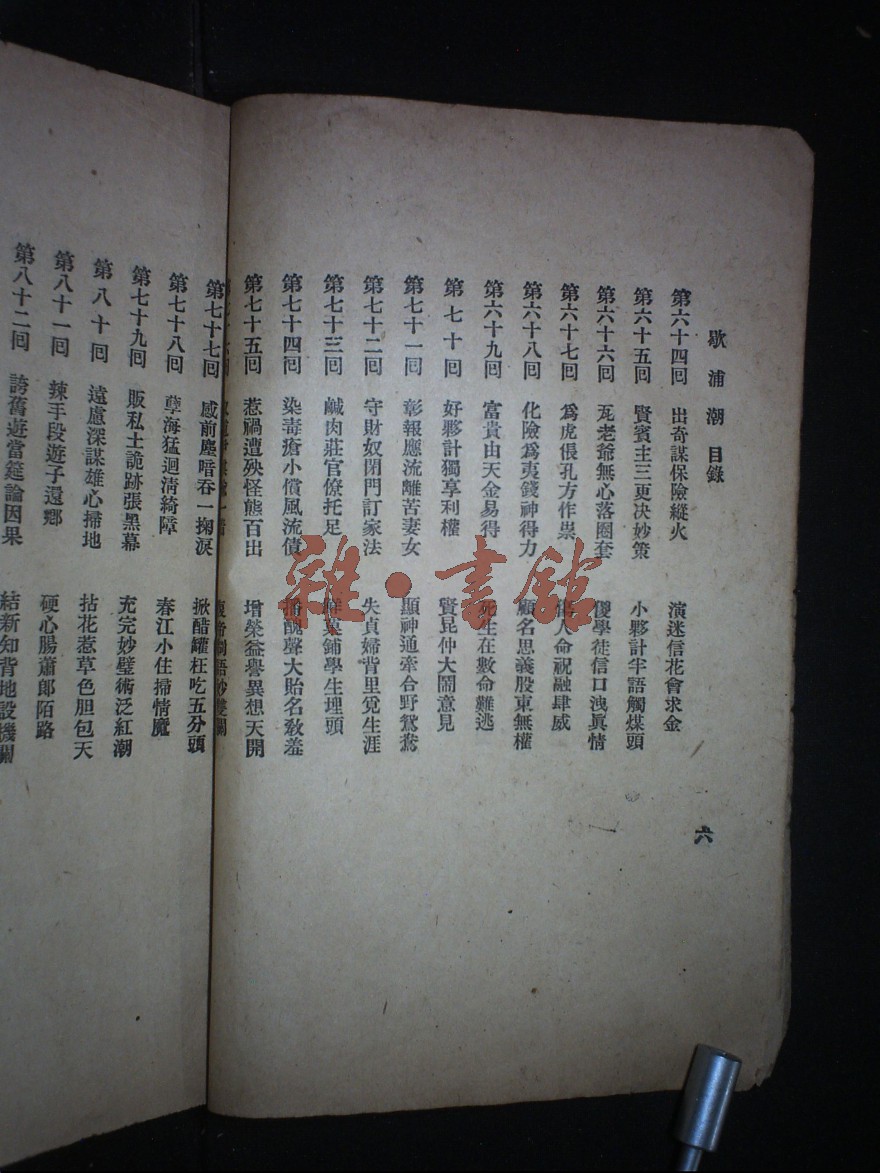 歇浦潮 目錄
六
第六十四回 出奇謀保險縱火 演迷信花會求金
第六十五回 賢賓主三更决妙策 小夥計半語觸煤頭
第六十六回 瓦老爺無心落圈套 儍學徒信口洩眞情
第六十七回 爲虎倀孔方作祟 傷人命祝融肆威
第六十八回 化險爲夷錢神得力 顧名思義股東無權
第六十九回 富貴由天金易得 死生在數命難逃
第七十回 好夥計獨享利權 賢昆仲大鬧意見
第七十一回 彰報應流離苦妻女 顯神通牽合野鴛鴦
第七十二回 守財奴閉門訂家法 失貞婦背里覓生涯
第七十三回 鹹肉莊官僚托足 學生埋頭
第七十四回 染毒瘡小償風流債 播醜聲大貽名敎羞
第七十五回 惹禍遭殃怪態百出 增榮益譽異想天開
第七十七回 感前塵暗吞一掬淚 掀酷罐枉吃五分頭
第七十八回 孽海猛迴淸綺障 春江小住掃情魔
第七十九回 販私土詭跡張黑幕 充完妙璧術泛紅潮
第八十回 遠慮深謀雄心掃地 拈花惹草色胆包天
第八十一回 辣手段遊子還鄕 硬心腸蕭郞陌路
第八十二回 誇舊遊當筵論因果 結新知背地設機關
雜·書館